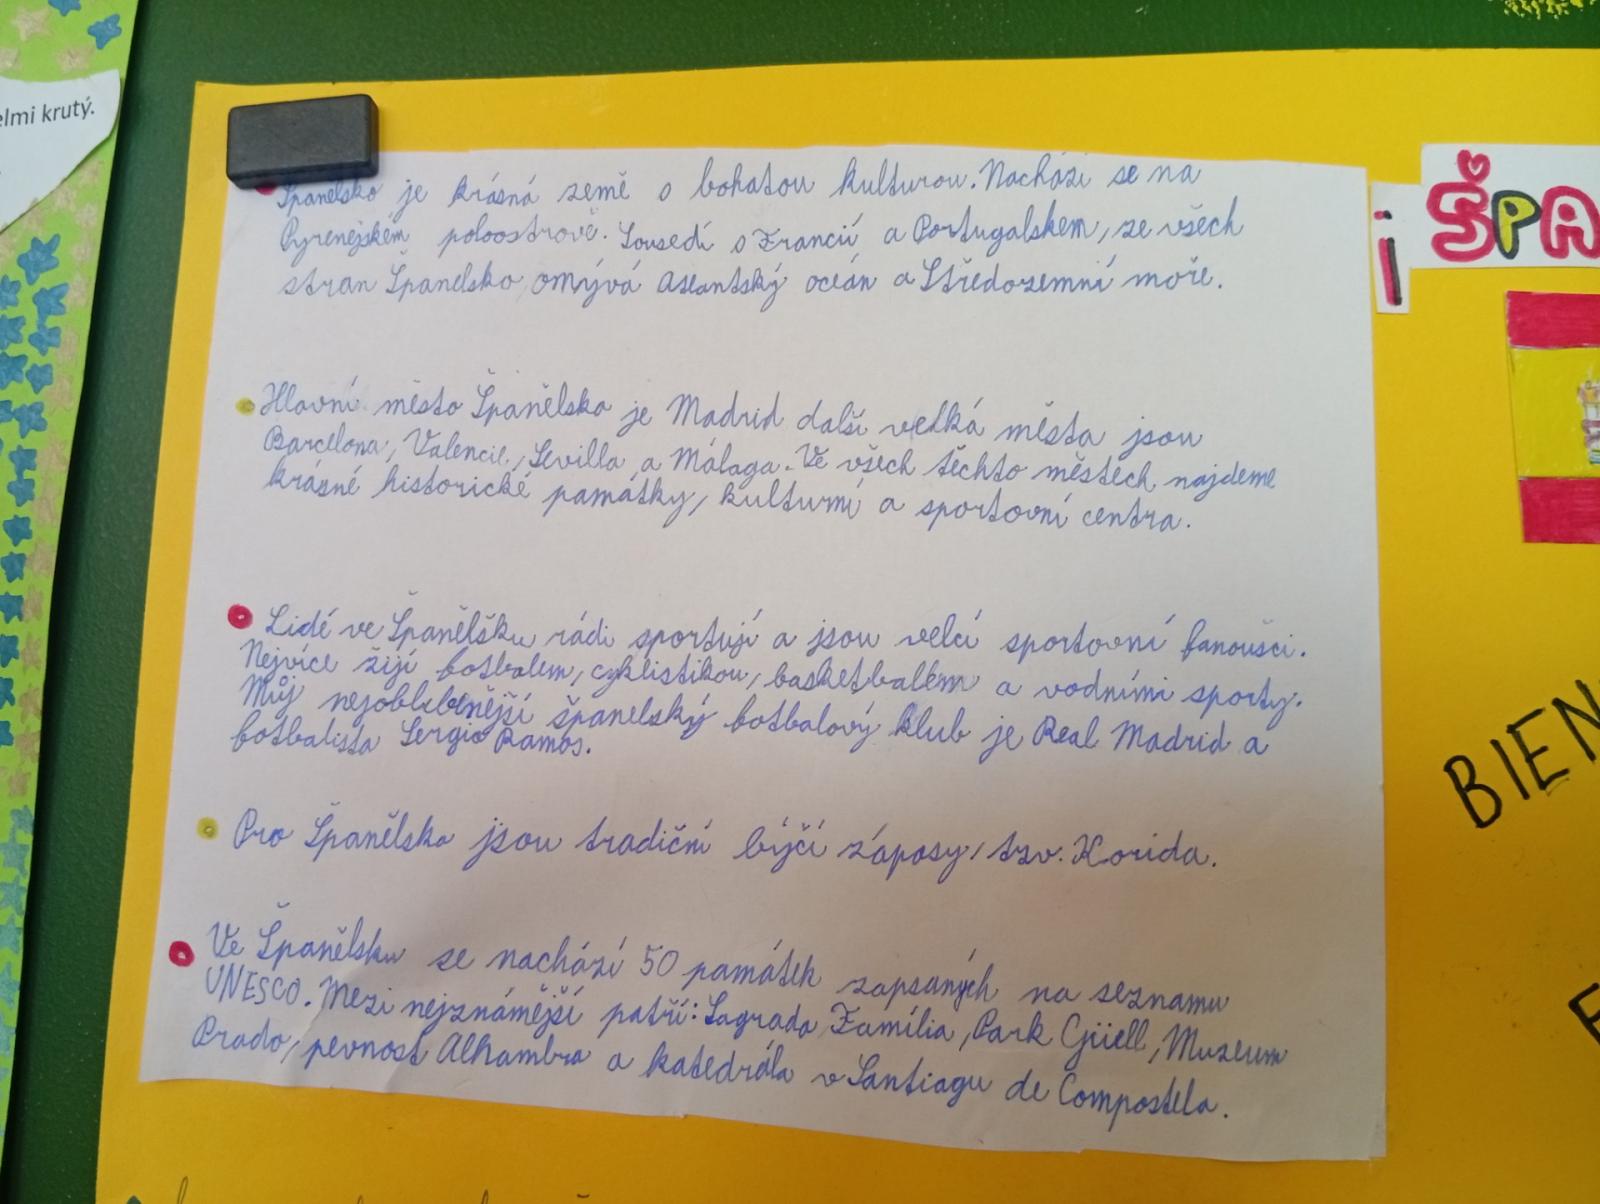 elmi krutý.
Španelsko je krásná země s bohatou kulturou. Nachází se na
Pyrenejském poloostrově. Sousedí s Francií a Portugalskem, ze všech
stran Španelsko omývá Atlantský oceán a Středozemní moře.
Hlavní město Španělska je Madrid další velká města jsou
Barcelona, Valencie, Sevilla a Málaga. Ve všech těchto městech najdeme
krásné historické památky, kulturní a sportovní centra.
Lidé ve Španělšku rádi sportují a jsou velcí sportovní fanoušci.
Nejvíce žijí fotbalem, cyklistikou, basketbalem a vodními sporty.
Můj nejoblíbenější španelský fotbalový klub je Real Madrid a
fotbalista Sergio Ramos.
Pro Španělsko jsou tradiční býčí zápasy, tzv. Korida.
Ve Španělsku se nachází 50 památek zapsaných na seznamu
UNESCO. Mezi nejznámější patří: Sagrada Família, Park Güell, Muzeum
Prado, pevnost Alhambra a katedrála v Santiagu de Compostela.
i ŠPA
BIEN